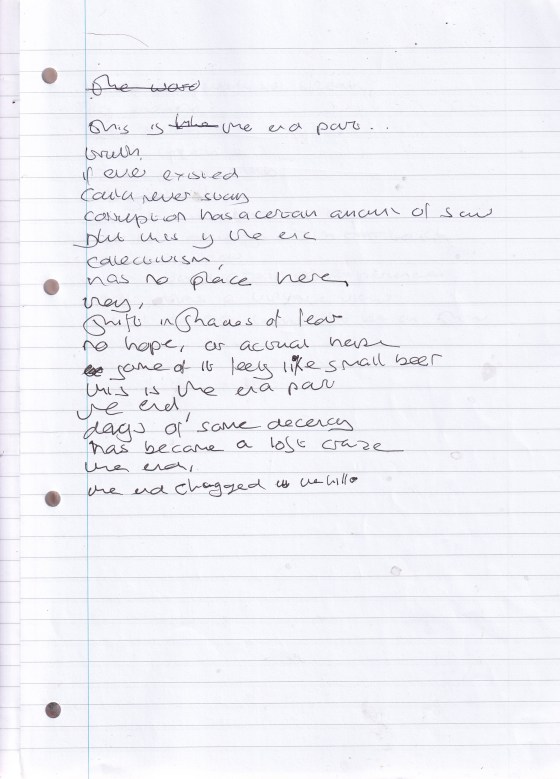 The word
this is like the end part..
truth,
if ever existed
could never stay
corruption has a certain amount of say
but this is the end
collectivism,
has no place here,
they,
shift in shades of fear
no hope, or actual
some of it feels like small beer
this is the end part
the end,
days of some decency
has become a lost craze
the end,
the end